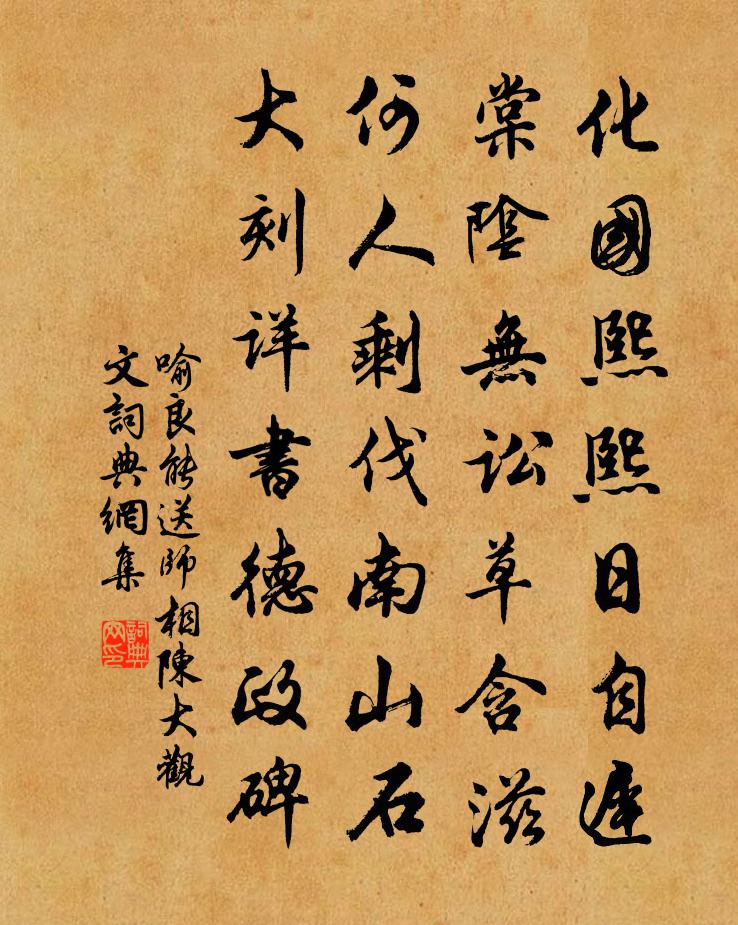 化國熙熙日自遲
棠陰無訟草含滋
何人剩伐南山石
大刻詳書德政碑
喻良能送師相陳大觀
文詞典網集
詞典
网印